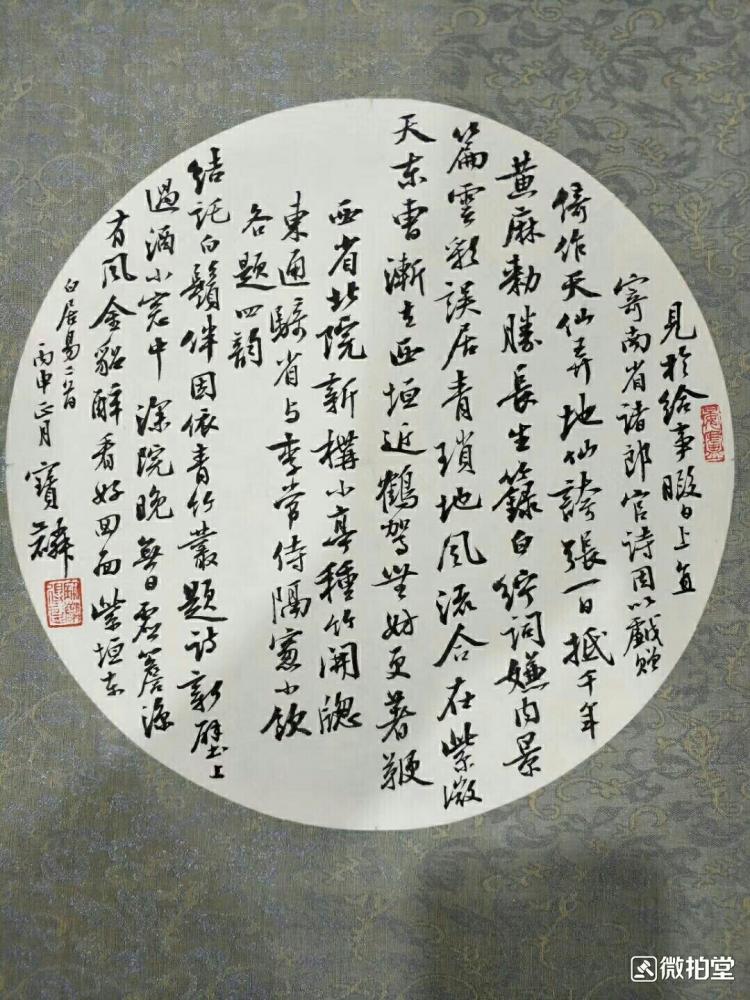 見於給事暇日上直
寄南省諸郎官詩因以戲贈
倚作天仙弄地仙誇張一日抵千年
黄麻勅勝長生籙白紵詞嫌内景
篇雲彩誤居青瑣地風流合在紫微
天東曹漸去西垣近鶴駕無妨更著鞭
西省北院新構小亭種竹開窓
東通騎省與李常侍隔窻小飲
各題四韻
結託白鬚伴因依青竹叢題詩新壁上
過酒小窓中深院晚無日虛簷涼
有風金貂醉看好回首紫垣東
白居易二首
丙申正月 寶
微拍堂